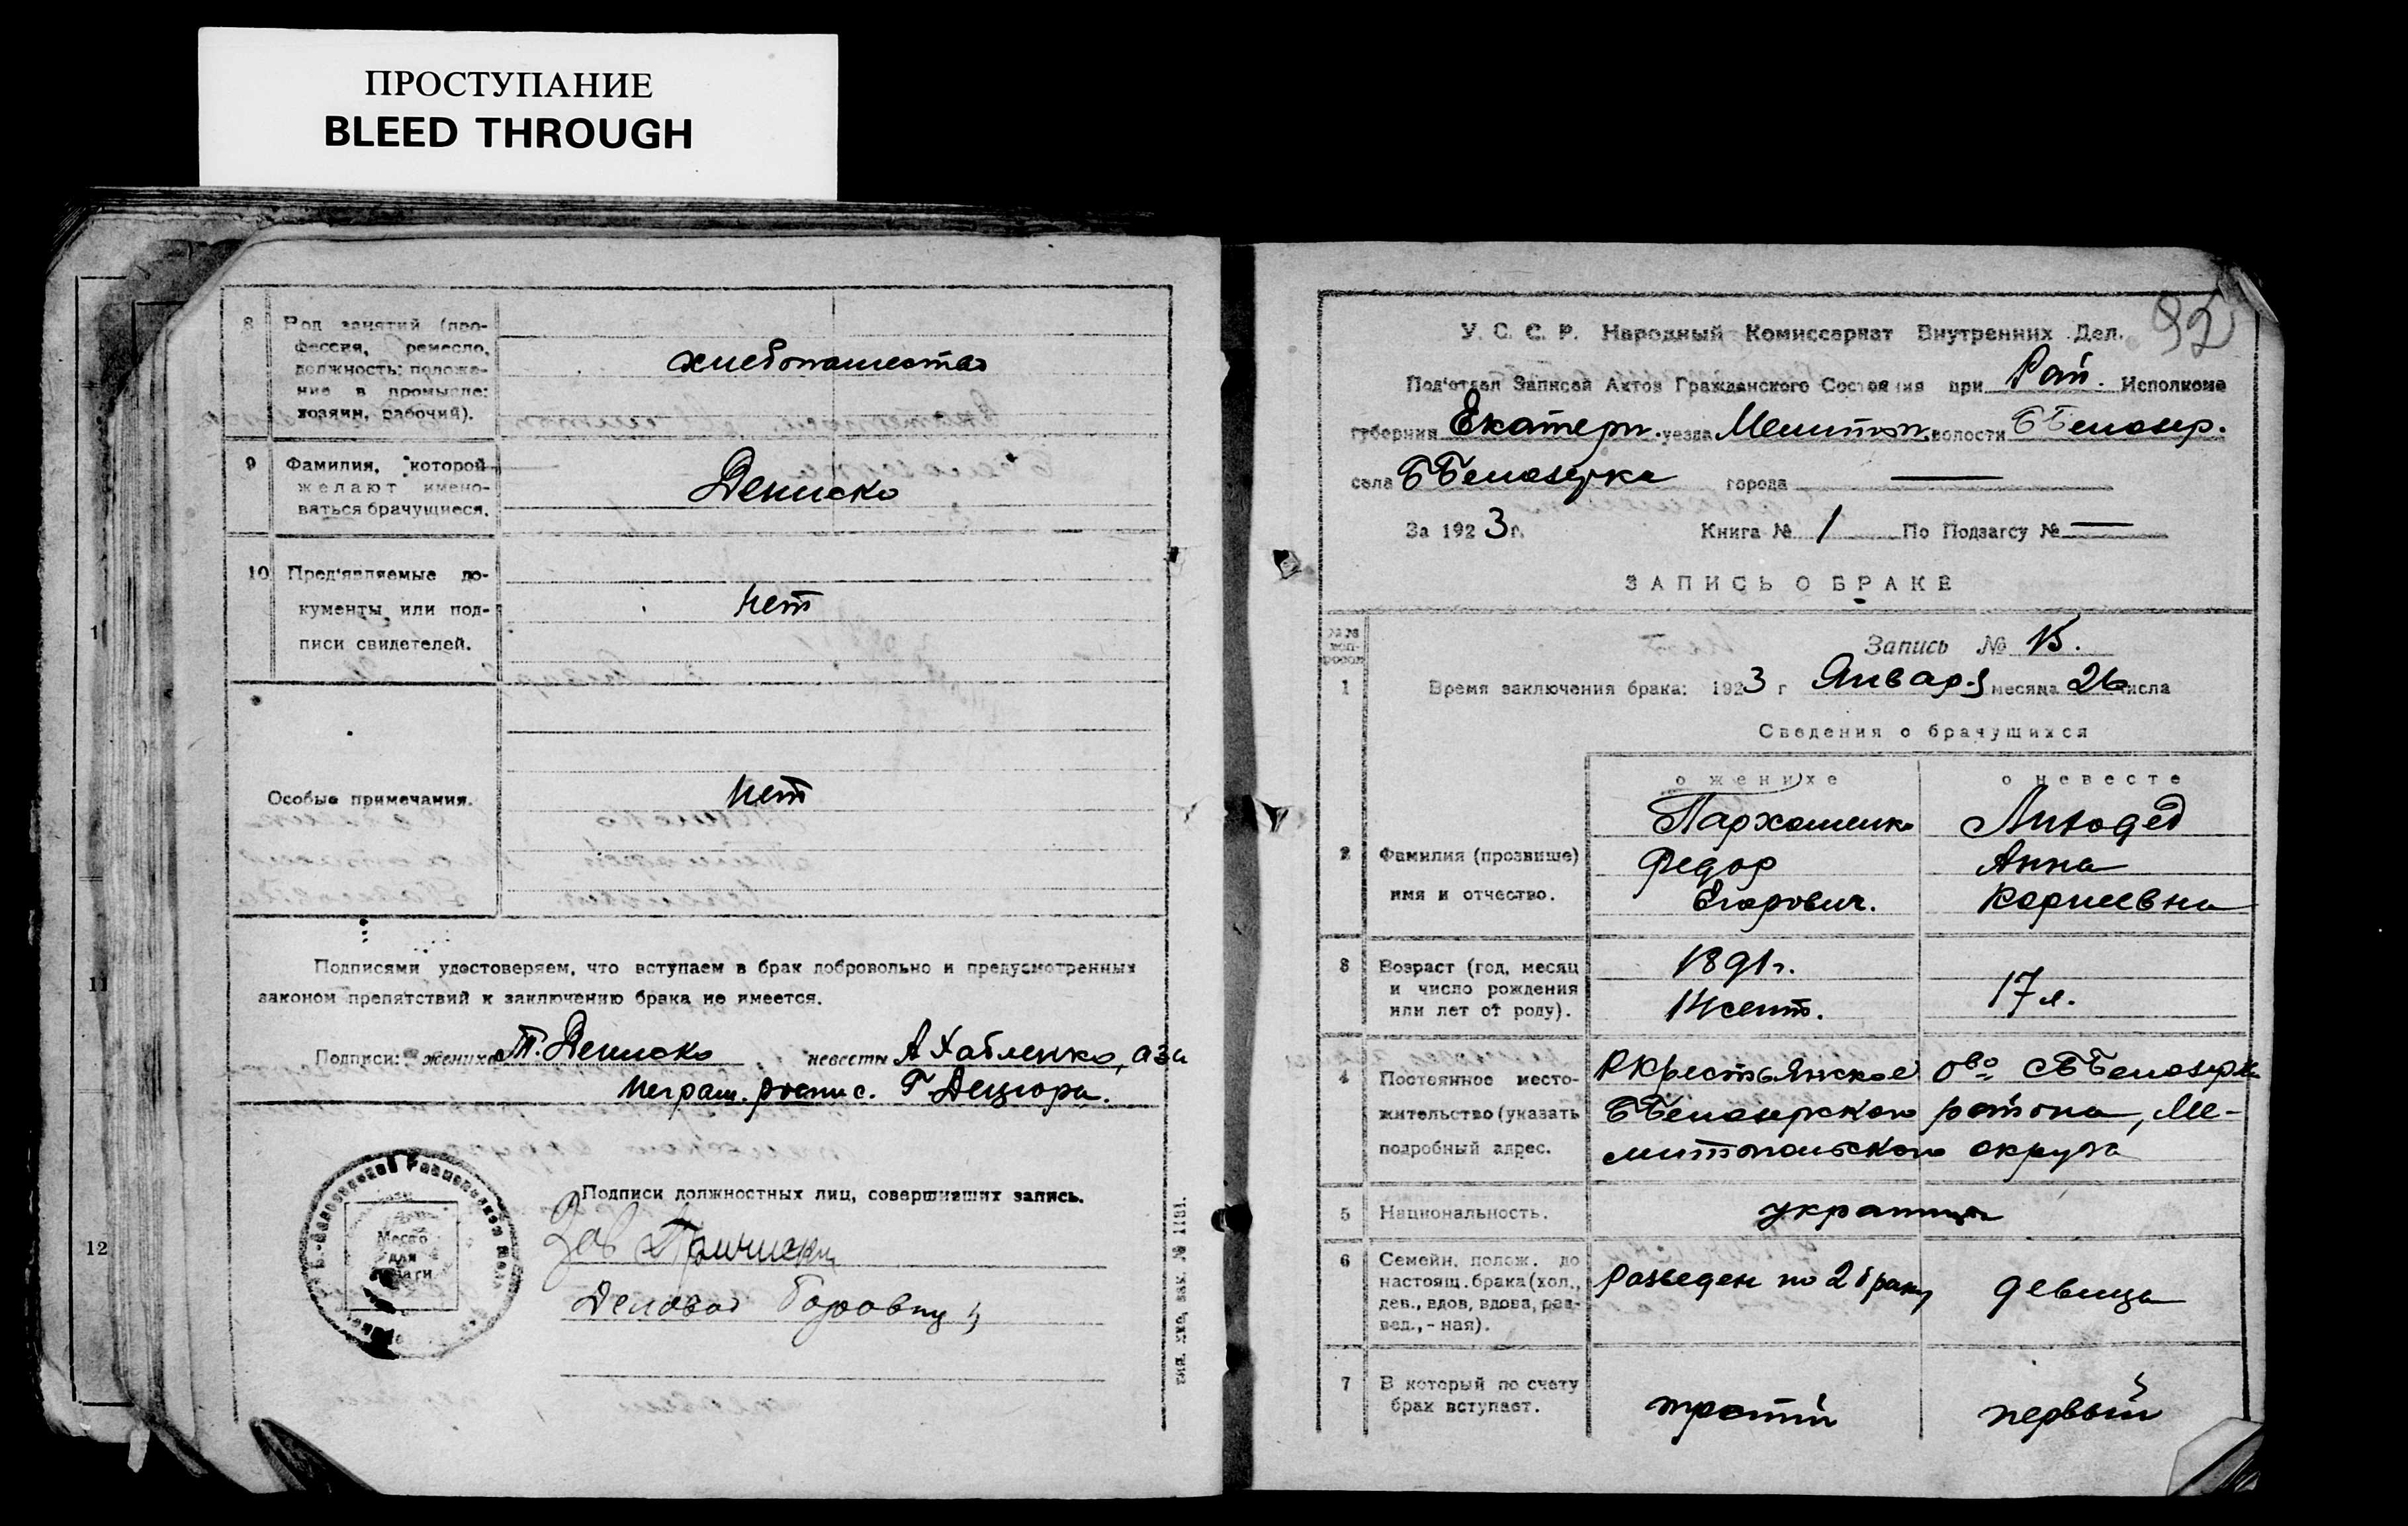 ПРОСТУПАНИЕ
BLEED THROUGH
8 Род занятий (про-
фессия, ремесло,
должность; положе-
ние в промысле:
хозяин, рабочий).
хлебопашество
9 Фамилия, которой
желают имено-
ваться брачущиеся.
Дениско
10 Пред'являемые до-
кументы или под-
писи свидетелей.
нет
Особые примечания.
нет
Подписями удостоверяем, что вступаем в брак добровольно и предусмотренных
законом препятствий к заключению брака не имеется.
Подписи: жениха Т. Дениско невесты А Хабленко, а за
неграм. роспис. Г.
Место
для
печати
Подписи должностных лиц, совершивших запись.
Зав
Деловод
11
12
92
У. С. С. Р. Народный Комиссариат Внутренних Дел.
Под'отдел Записей Актов Гражданского Состояния при Рай. Исполкоме
губернии Екатери. уезда Мелитоп. волости Б Белозер.
села Б Белозерка города —
За 1923 г. Книга № 1 По Подзагсу № —
ЗАПИСЬ О БРАКЕ
№№ воп-
росов
Запись № 15.
1 Время заключения брака: 1923 г Января месяца 26 числа
Сведения о брачущихся
о женихе о невесте
Пархоменко Линодед
2 Фамилия (прозвище)
Федор Анна
имя и отчество.
Егорович. Корнеевна
3 Возраст (год, месяц
и число рождения
или лет от роду).
1891 г.
14 сент. 17 л.
4 Постоянное место-
жительство (указать
подробный адрес.
Крестьянское о-во с Б Белозерка
Б Белозерского района, Ме-
литопольского округа
5 Национальность.
украинцы
6 Семейн. полож. до
настоящ. брака (хол.,
дев., вдов, вдова, раз-
вед., - ная).
Разведен по 2 браку девица
7 В который по счету
брак вступает.
третий первый